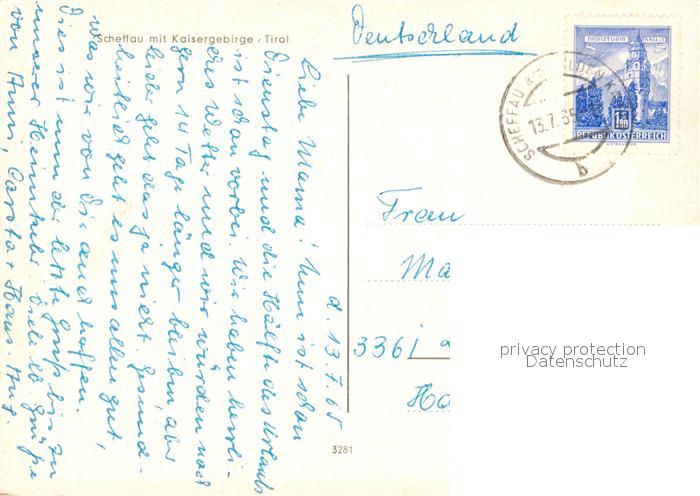 Scheffau mit Kaisergebirge, Tirol
Deutschland
MÜNZTURM HALL I. T.
S 1.90
REPUBLIK ÖSTERREICH
SCHEFFAU am WILDEN KAISER
13.7.65
b
d. 13.7.65
Liebe Mama! Nun ist schon
Dienstag und die Hälfte des Urlaubs
ist schon vorbei. Wir haben herrli-
ches Wetter und wir würden noch
gern 14 Tage länger bleiben aber
leider geht das ja nicht. Gesund-
heitlich geht es uns allen gut,
was wir von Dir auch hoffen.
Dies ist nun der letzte Gruß bis zu
unserer Heimkehr. Viele lb Grüße
von Anni, Carsta + Hans-Aug.
Frau
Ma
3361
Ho
3281
privacy protection
Datenschutz